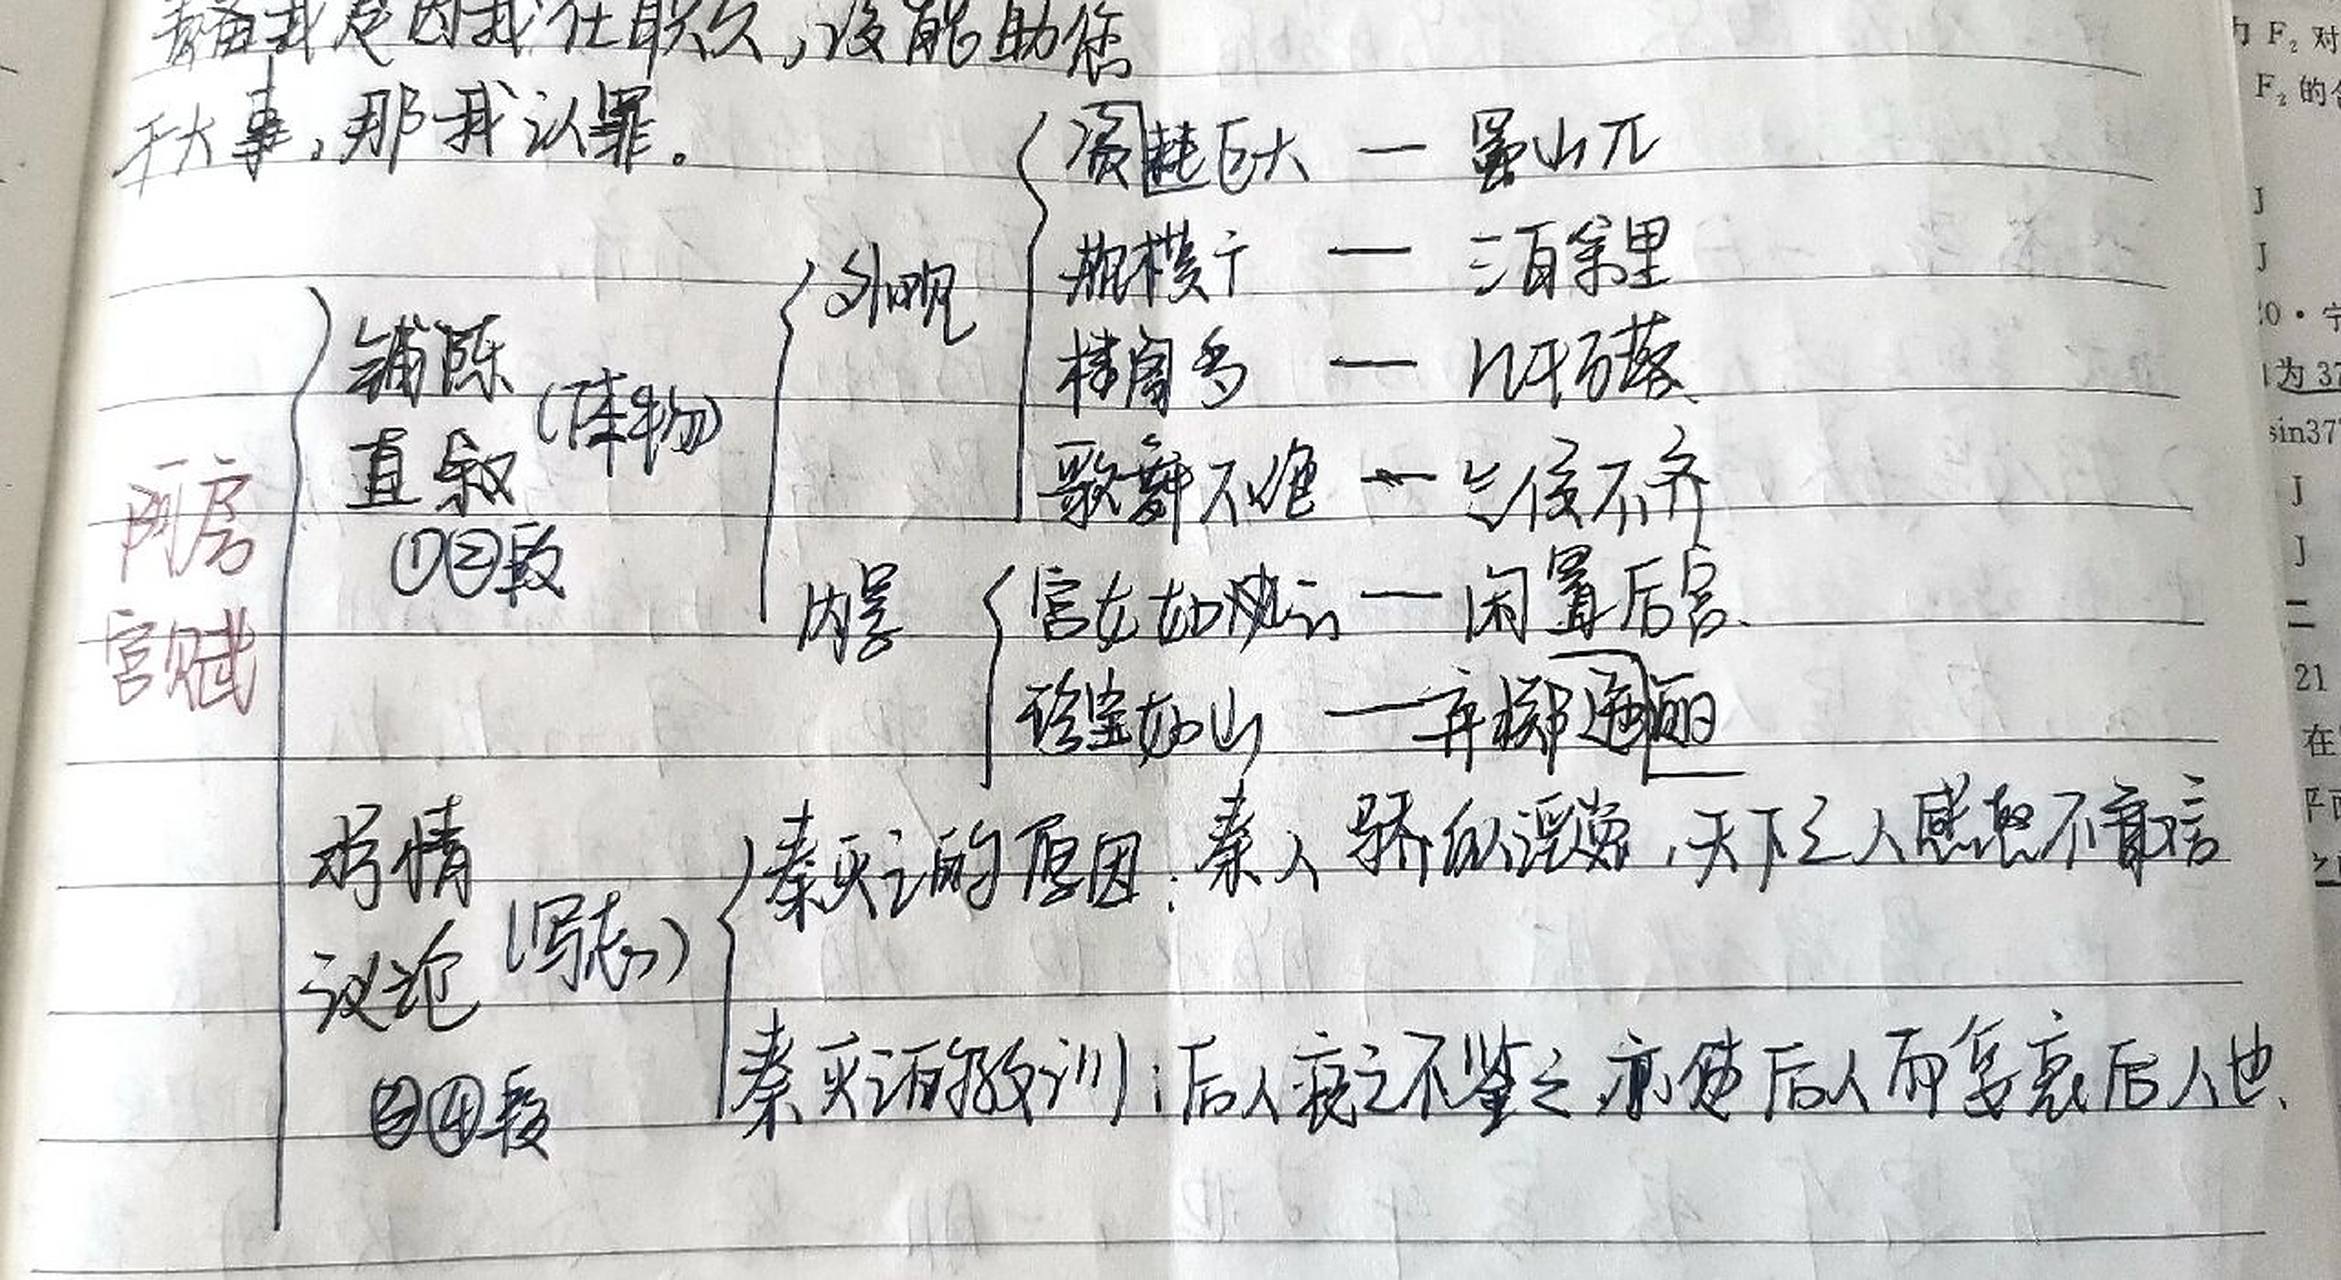 责备我是因我在职久,没能助您
干大事,那我认罪。
阿房
宫赋
铺陈
直叙
(体物)
①②段
外观
资耗巨大 — 蜀山兀
规模宁 — 三百余里
楼阁多 — 几千万落
歌舞不绝 — 气候不齐
内景
宫女如云 — 闲置后宫
珍宝如山 — 弃掷逦迤
抒情
议论
(写志)
③④段
秦灭亡的原因:秦人骄纵淫奢,天下之人感怒不敢言
秦灭亡的教训:后人哀之不鉴之,亦使后人而复哀后人也、
力 F₂ 对
F₂ 的
J
J
20·宁
为 37
sin37
J
J
二
21
在
平面